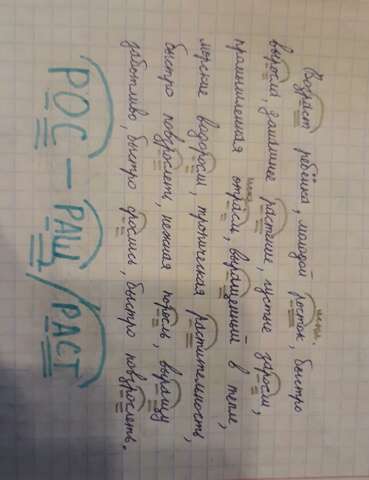 Возраст ребёнка, молодой росток, быстро
искл.
выросла, домашнее растение, густые заросли,
искл.
промышленная отрасль, выращенный в тепле,
морские водоросли, тропическая растительность,
быстро повзрослеть, нежная поросль, выращу
заботливо, быстро быстро повзрослеть.
РОС – РАЩ/РАСТ